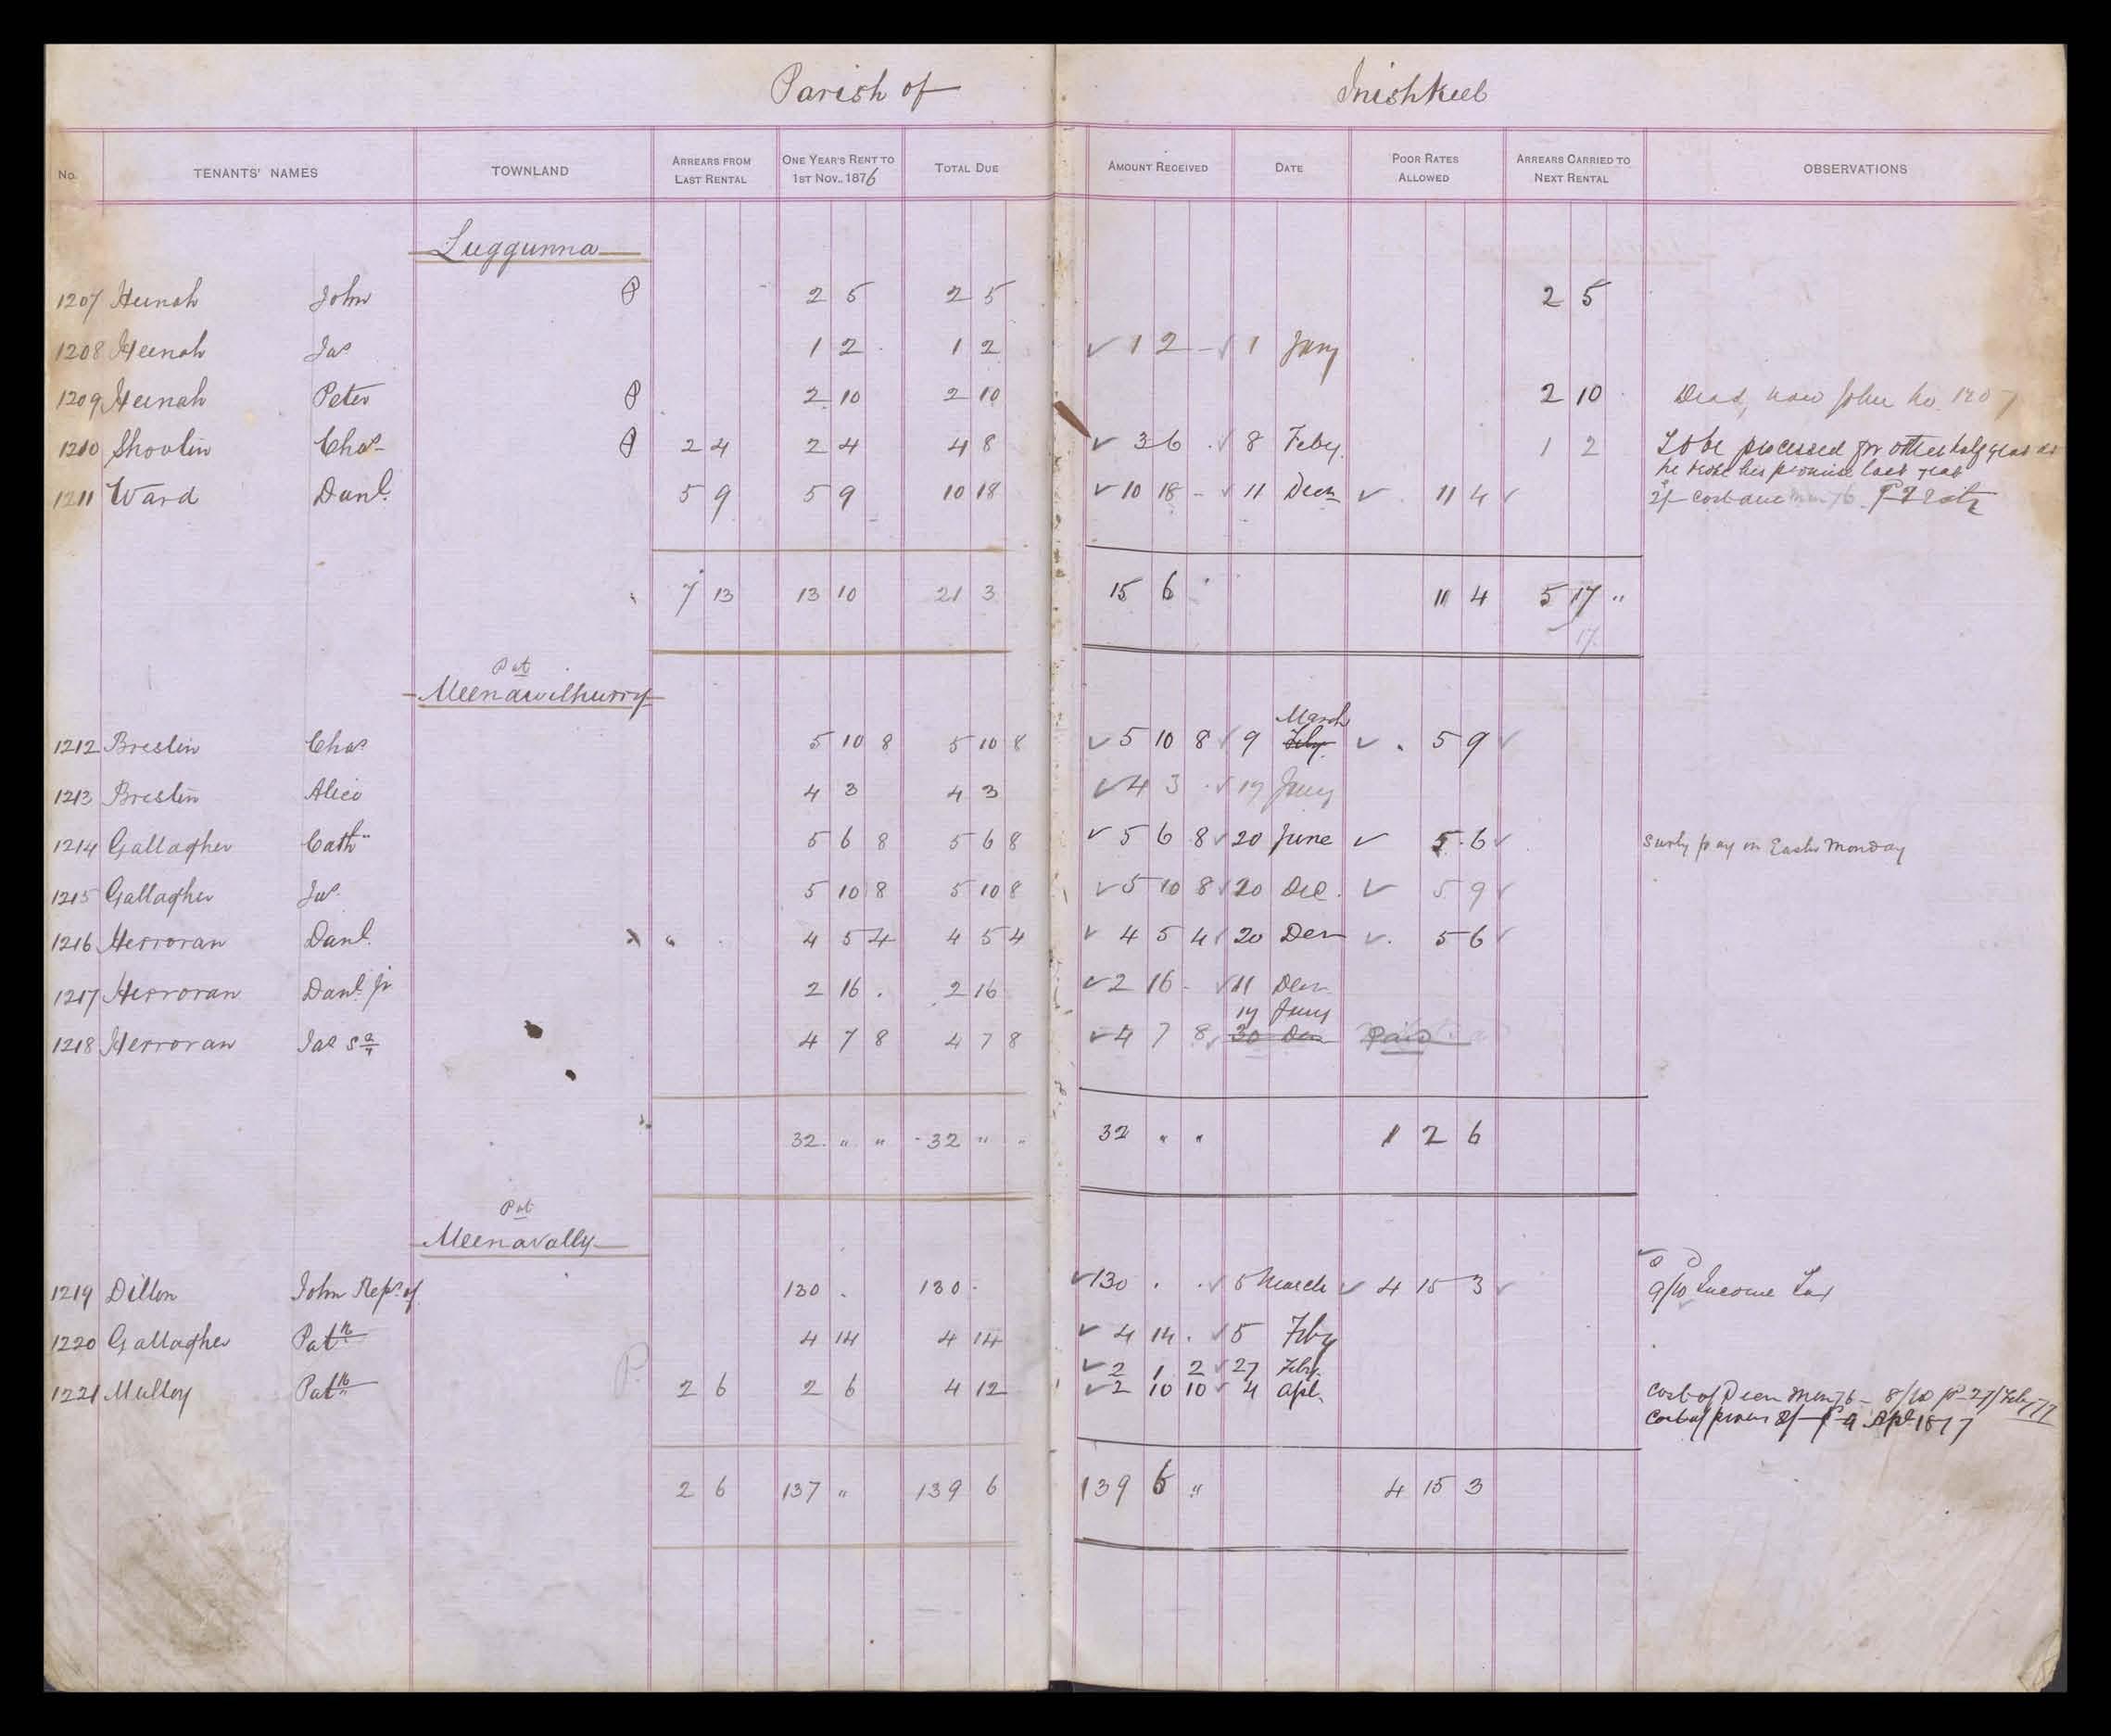 Parish of Inishkeel
No. TENANTS' NAMES TOWNLAND ARREARS FROM LAST RENTAL ONE YEAR'S RENT TO 1ST NOV., 1876 TOTAL DUE AMOUNT RECEIVED DATE POOR RATES ALLOWED ARREARS CARRIED TO NEXT RENTAL OBSERVATIONS
Luggunna
1207 Heenah John 2 5 2 5 2 5
1208 Heenah Jas 1 2 1 2 ✓ 1 2 - ✓ 1 Jany
1209 Heenah Peter 2 10 2 10 2 10 Dead, now John No. 1207
1210 Shovlin Chas 2 4 2 4 4 8 ✓ 3 6 ✓ 8 Feby 1 2 To be processed for other half year as
he broke his promise last year
1211 Ward Danl. 5 9 5 9 10 18 ✓ 10 18 - ✓ 11 Decr ✓ 11 4 ✓ 2/- cost due
7 13 13 10 21 3 15 6 11 4 5 17 "
17
Pat
Meenawilhurry
March
1212 Breslin Chas 5 10 8 5 10 8 ✓ 5 10 8 ✓ 9 Feby ✓ 5 9 ✓
1213 Breslin Alice 4 3 4 3 ✓ 4 3 ✓ 19 Jany
1214 Gallagher Cath 5 6 8 5 6 8 ✓ 5 6 8 ✓ 20 June ✓ 5 6 ✓ surly pay on Easter Monday
1215 Gallagher Jas 5 10 8 5 10 8 ✓ 5 10 8 ✓ 20 Dec. ✓ 5 9 ✓
1216 Herroran Danl. 4 5 4 4 5 4 ✓ 4 5 4 ✓ 20 Decr ✓ 5 6 ✓
1217 Herroran Danl. jr 2 16 . 2 16 ✓ 2 16 - ✓ 11 Decr
19 Jany
1218 Herroran Jas 4 7 8 4 7 8 ✓ 4 7 8 ✓ 30 Decr Paid
32 " " 32 " " 32 " " 1 2 6
Pat
Meenavally
1219 Dillon John Reps. of 130 . 130 . ✓ 130 . . ✓ 5 March ✓ 4 15 3 ✓ 9/10 Income Tax
1220 Gallagher Patk 4 14 4 14 ✓ 4 14 . ✓ 5 Feby
✓ 2 1 2 ✓ 27 Feby.
1221 Mulloy Patk P. 2 6 2 6 4 12 ✓ 2 10 10 ✓ 4 Apl. Cost of Decn 76 - 8/10 pd 27/Feby 77
Cost of process 2/- Apl 1877
2 6 137 " 139 6 139 6 " 4 15 3